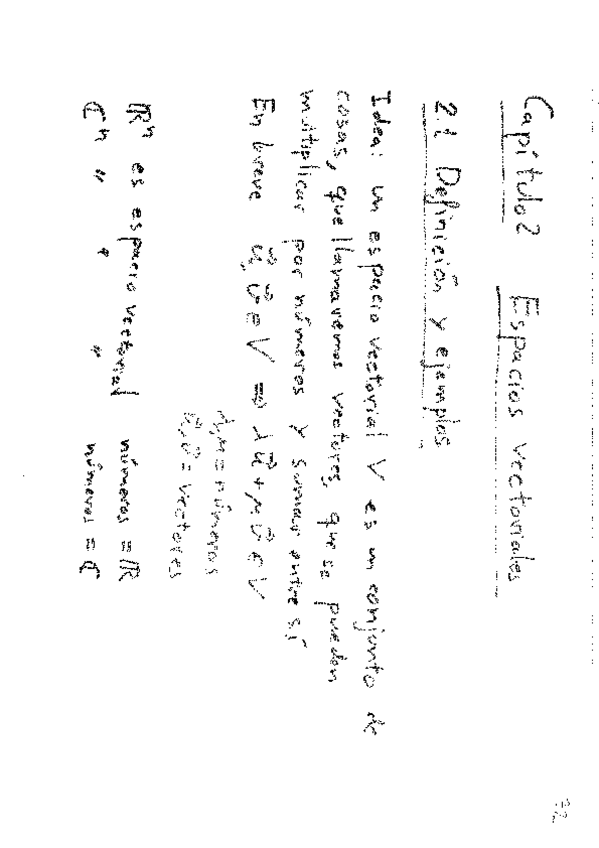 32
Capítulo 2 Espacios vectoriales
2.1 Definición y ejemplos
Idea: un espacio vectorial V es un conjunto de
cosas, que llamaremos vectores, que se pueden
multiplicar por números y sumar entre sí
En breve \vec{u}, \vec{v} ∈ V ⇒ λ\vec{u} + μ\vec{v} ∈ V
λ, μ = números
\vec{u}, \vec{v} = vectores
ℝⁿ es espacio vectorial números = ℝ
ℂⁿ " " " números = ℂ